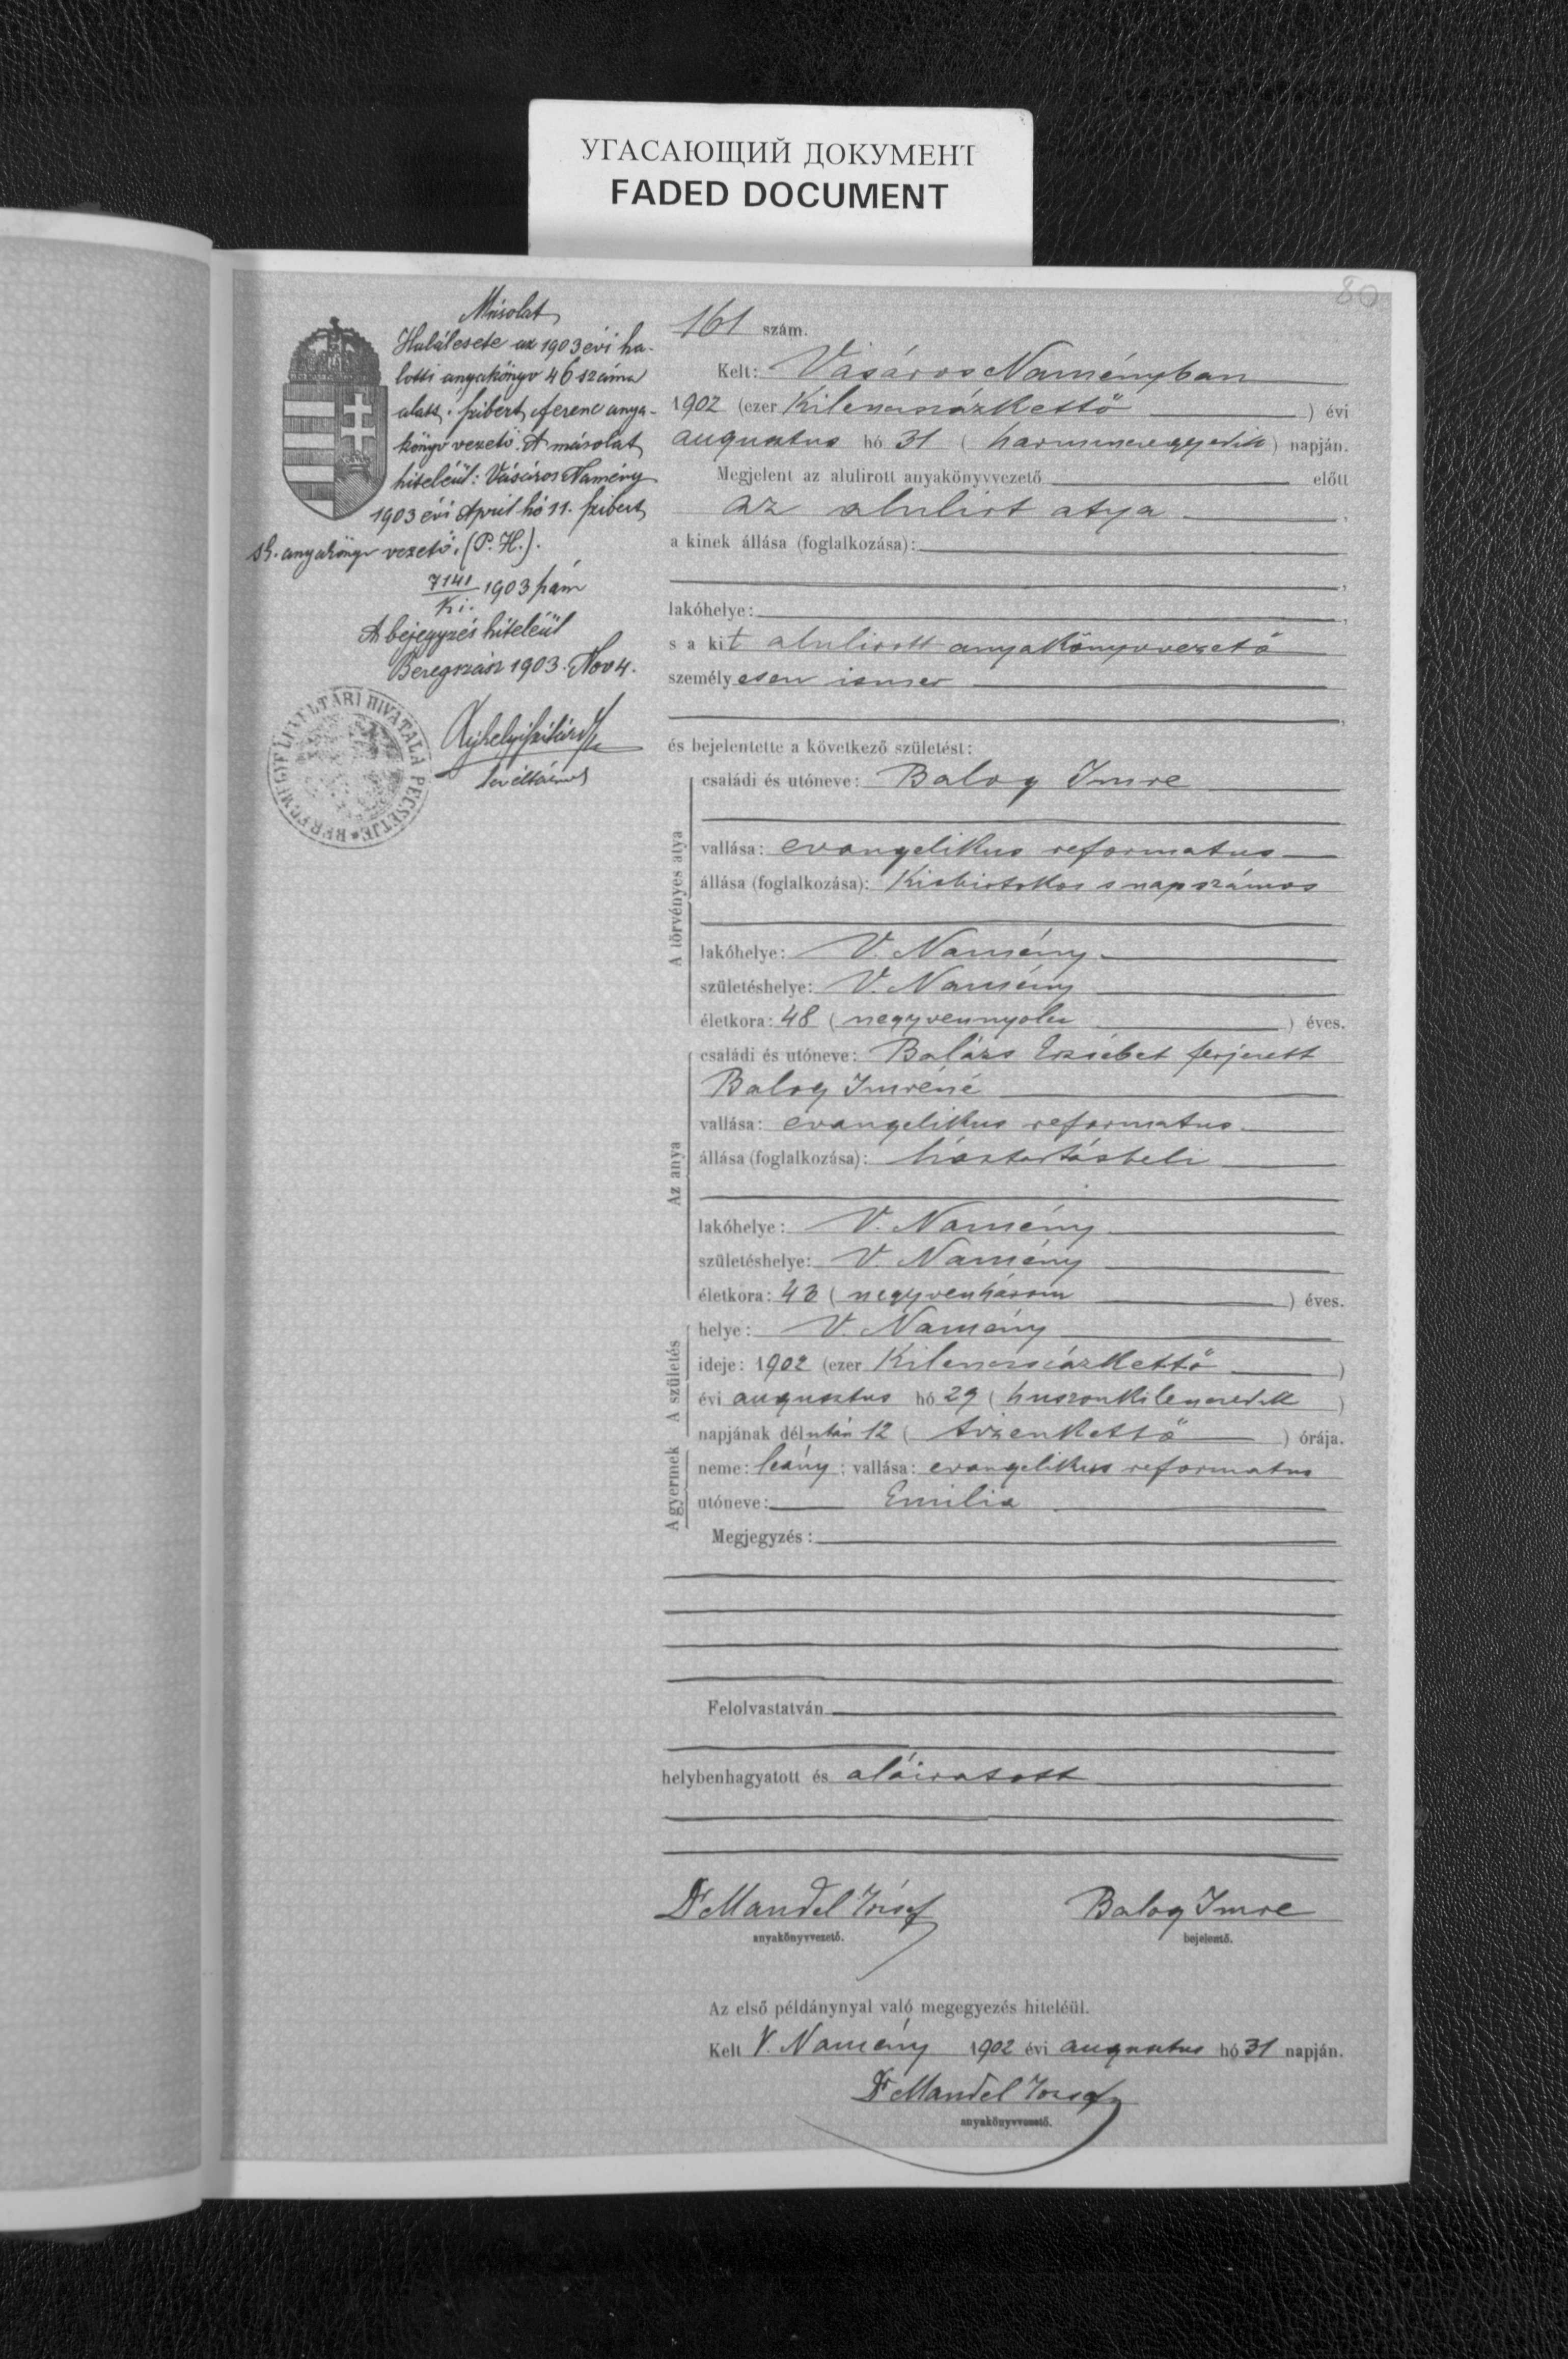 УГАСАЮЩИЙ ДОКУМЕНТ
FADED DOCUMENT
80
Másolat
Halálesete az 1903 évi ha-
lotti anyakönyv 46 száma
alatt. Ferenc anya-
könyv vezető. A másolat
hiteléül: Vásáros Namény
1903 évi April hó 11.
sk. anyakönyv vezető. (P. H.).
7141
Ki. 1903 szám
A bejegyzés hiteléül
Beregszász 1903. Nov 4.
LEVÉLTÁRI HIVATALA PECSÉTJE
161 szám.
Kelt: Vásáros Naményban
1902 (ezer Kilencszázkettő ) évi
augusztus hó 31 ( harmincegyedik ) napján.
Megjelent az alulirott anyakönyvvezető előtt
az alulirt atya ,
a kinek állása (foglalkozása):
,
lakóhelye: ,
s a kit alulirott anyakönyvvezető
személyesen ismer
,
és bejelentette a következő születést:
A törvényes atya
családi és utóneve: Balog Imre
vallása: evangelikus reformatus
állása (foglalkozása): Kisbirtokos s napszámos
lakóhelye: V. Namény
születéshelye: V. Namény
életkora: 48 ( negyvennyolc ) éves.
Az anya
családi és utóneve: Balázs Erzsébet ferjezett
Balog Imréné
vallása: evangelikus reformatus
állása (foglalkozása): háztartásbeli
lakóhelye: V. Namény
születéshelye: V. Namény
életkora: 43 ( negyvenhárom ) éves.
A születés
helye: V. Namény
ideje: 1902 (ezer Kilencszázkettő )
évi augusztus hó 29 ( huszonkilencedik )
napjának délután 12 ( tizenkettő ) órája.
A gyermek
neme: leány; vallása: evangelikus reformatus
utóneve: Emilia
Megjegyzés:
Felolvastatván
helybenhagyatott és aláiratott
Dr Mandel József Balog Imre
anyakönyvvezető. bejelentő.
Az első példánynyal való megegyezés hiteléül.
Kelt V. Namény 1902 évi augusztus hó 31 napján.
Dr Mandel József
anyakönyvvezető.